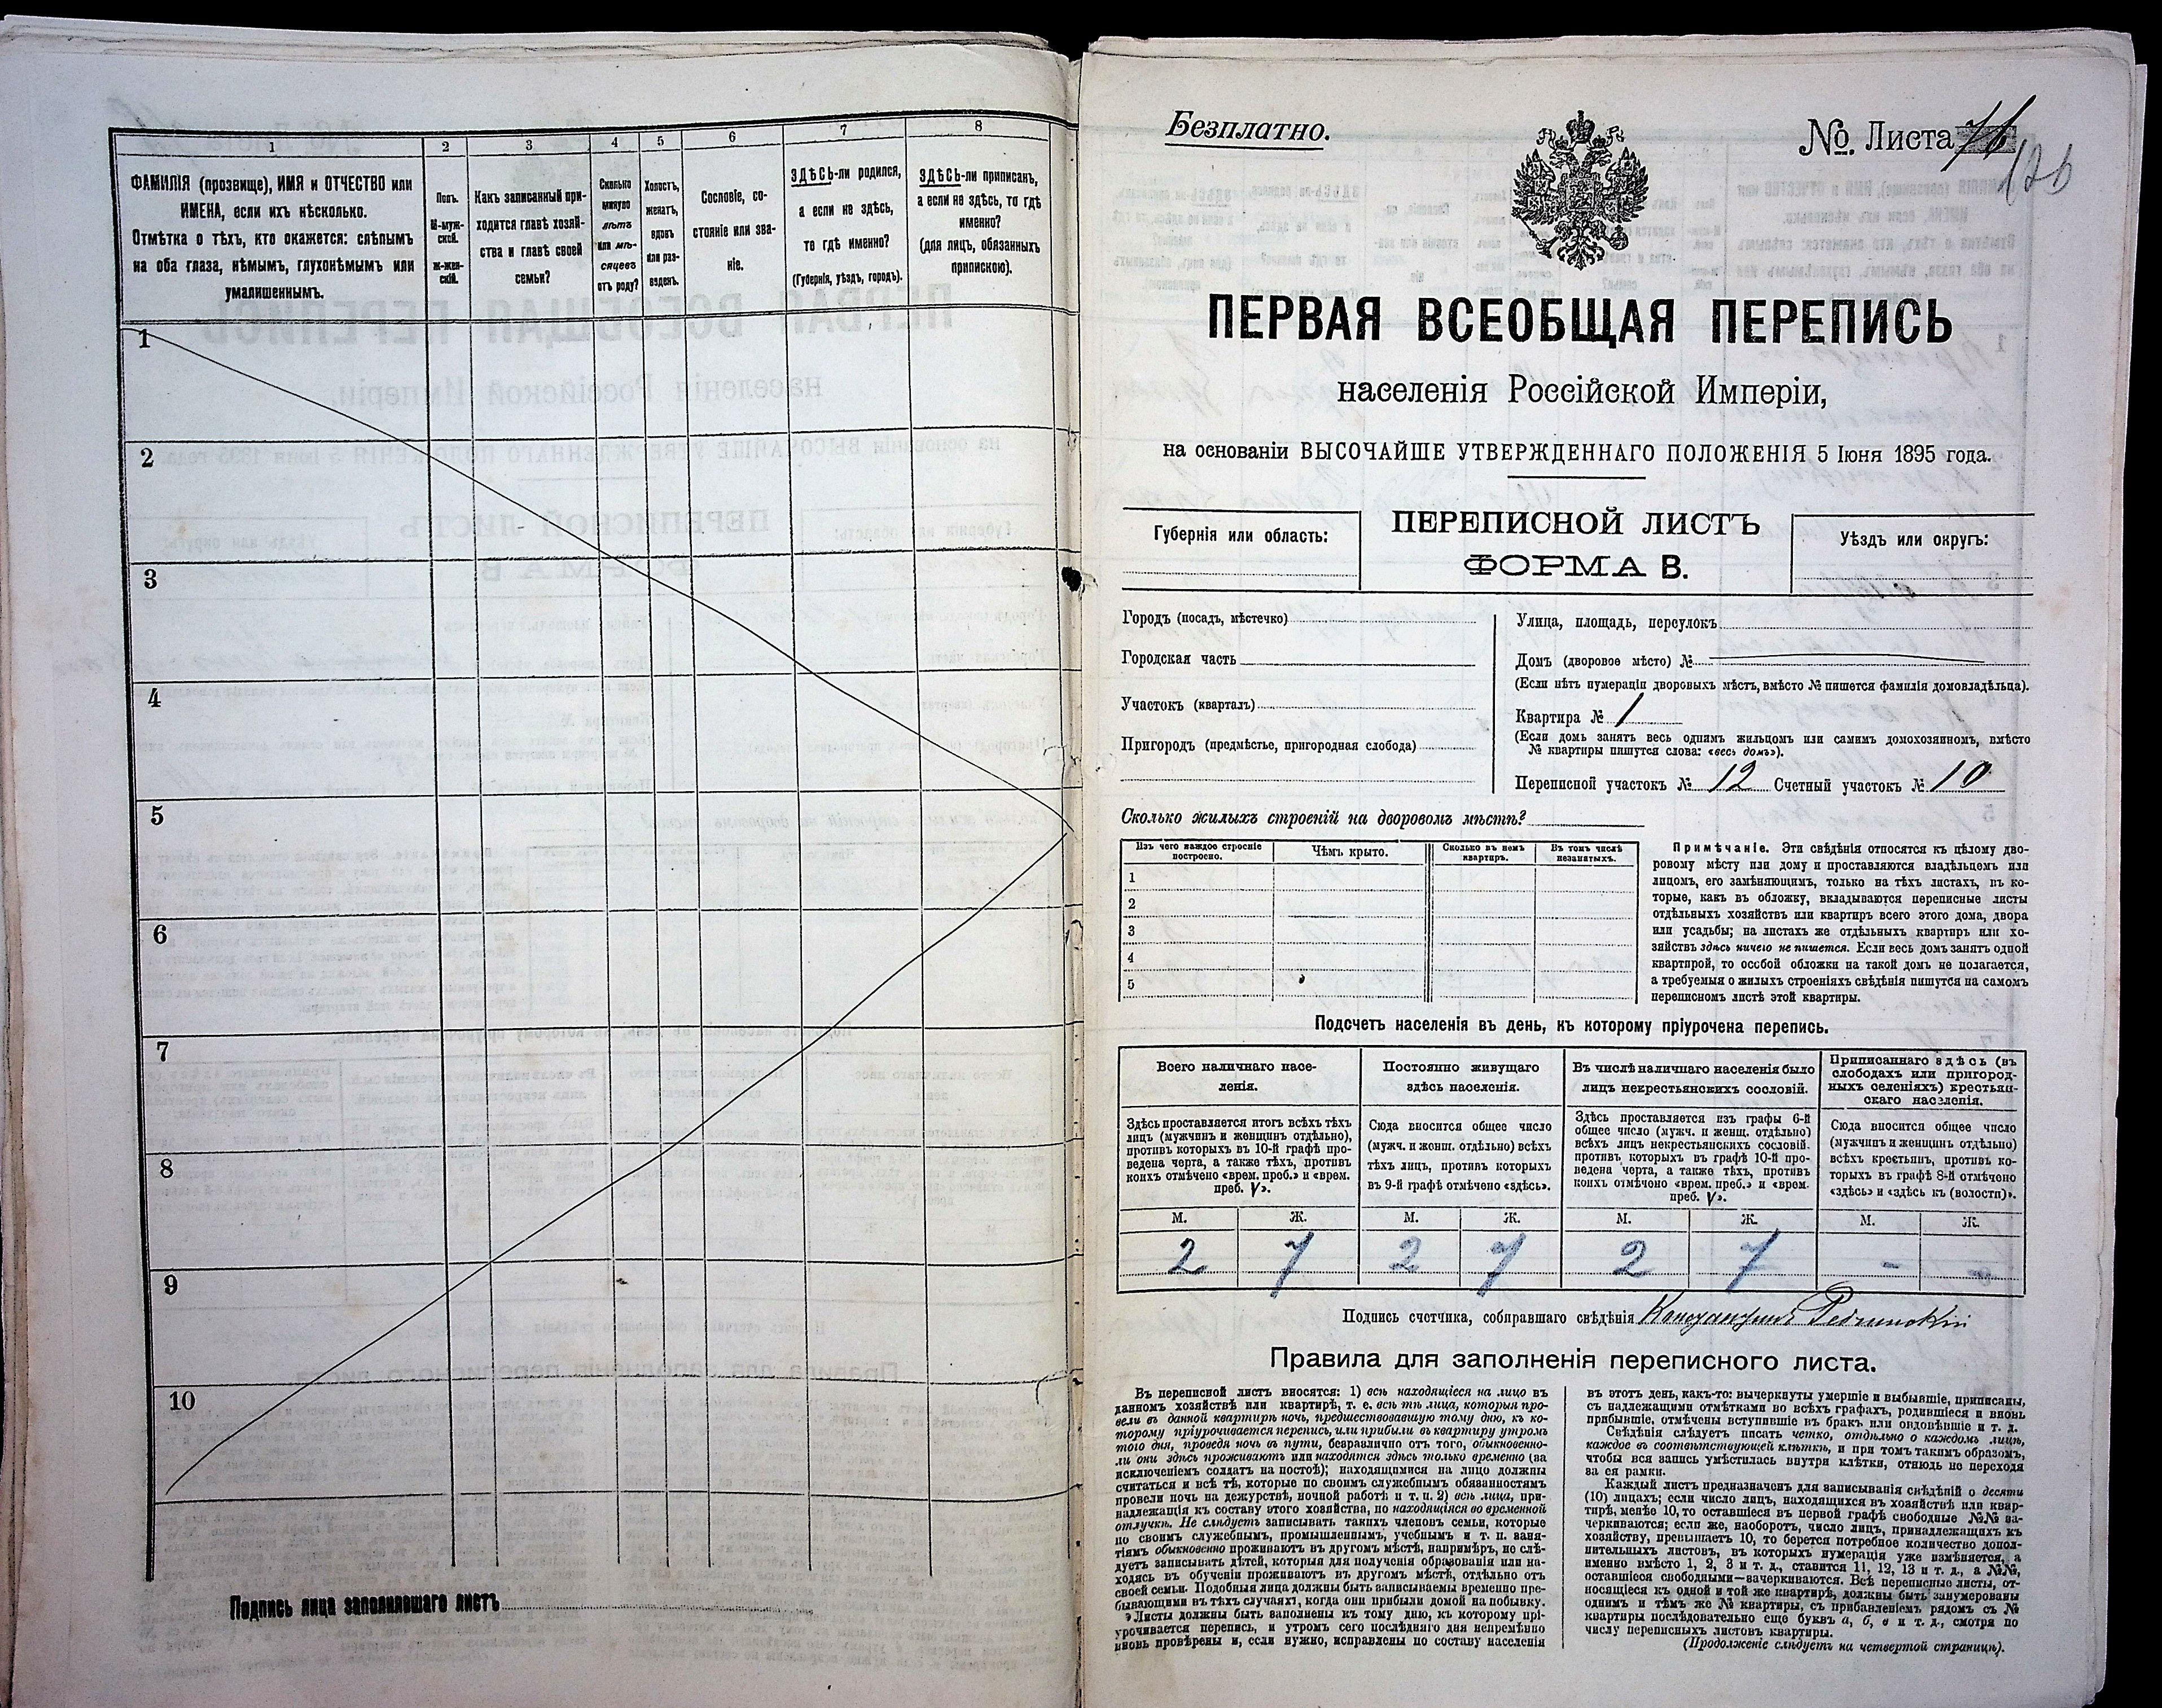 1
2
3
4
5
6
7
8
ФАМИЛІЯ (прозвище), ИМЯ и ОТЧЕСТВО или
ИМЕНА, если ихъ нѣсколько.
Отмѣтка о тѣхъ, кто окажется: слѣпымъ
на оба глаза, нѣмымъ, глухонѣмымъ или
умалишеннымъ.
Полъ.
М-муж-
ской.
Ж-жен-
скій.
Какъ записанный при-
ходится главѣ хозяй-
ства и главѣ своей
семьи?
Сколько
минуло
лѣтъ
или мѣ-
сяцевъ
отъ роду?
Холостъ,
женатъ,
вдовъ
или раз-
веденъ.
Сословіе, со-
стояніе или зва-
ніе.
ЗДѢСЬ-ли родился,
а если не здѣсь,
то гдѣ именно?
(Губернія, уѣздъ, городъ).
ЗДѢСЬ-ли приписанъ,
а если не здѣсь, то гдѣ
именно?
(для лицъ, обязанныхъ
припискою).
1
2
3
4
5
6
7
8
9
10
Подпись лица заполнившаго листъ
Безплатно.
№. Листа 76
126
ПЕРВАЯ ВСЕОБЩАЯ ПЕРЕПИСЬ
населенія Россійской Имперіи,
на основаніи ВЫСОЧАЙШЕ УТВЕРЖДЕННАГО ПОЛОЖЕНІЯ 5 Іюня 1895 года.
Губернія или область:
ПЕРЕПИСНОЙ ЛИСТЪ
ФОРМА В.
Уѣздъ или округъ:
Городъ (посадъ, мѣстечко)
Городская часть
Участокъ (кварталъ)
Пригородъ (предмѣстье, пригородная слобода)
Улица, площадь, переулокъ
Домъ (дворовое мѣсто) №
(Если нѣтъ нумераціи дворовыхъ мѣстъ, вмѣсто № пишется фамилія домовладѣльца).
Квартира № 1
(Если домъ занятъ весь однимъ жильцомъ или самимъ домохозяиномъ, вмѣсто
№ квартиры пишутся слова: «весь домъ»).
Переписной участокъ № 12 Счетный участокъ № 10
Сколько жилыхъ строеній на дворовомъ мѣстѣ?
Изъ чего каждое строеніе
построено.
Чѣмъ крыто.
Сколько въ немъ
квартиръ.
Въ томъ числѣ
незанятыхъ.
1
2
3
4
5
Примѣчаніе. Эти свѣдѣнія относятся къ цѣлому дво-
ровому мѣсту или дому и проставляются владѣльцемъ или
лицомъ, его замѣняющимъ, только на тѣхъ листахъ, въ ко-
торые, какъ въ обложку, вкладываются переписные листы
отдѣльныхъ хозяйствъ или квартиръ всего этого дома, двора
или усадьбы; на листахъ же отдѣльныхъ квартиръ или хо-
зяйствъ здѣсь ничего не пишется. Если весь домъ занятъ одной
квартирой, то особой обложки на такой домъ не полагается,
а требуемыя о жилыхъ строеніяхъ свѣдѣнія пишутся на самомъ
переписномъ листѣ этой квартиры.
Подсчетъ населенія въ день, къ которому пріурочена перепись.
Всего наличнаго насе-
ленія.
Постоянно живущаго
здѣсь населенія.
Въ числѣ наличнаго населенія было
лицъ некрестьянскихъ сословій.
Приписаннаго здѣсь (въ
слободахъ или пригород-
ныхъ селеніяхъ) крестьян-
скаго населенія.
Здѣсь проставляется итогъ всѣхъ тѣхъ
лицъ (мужчинъ и женщинъ отдѣльно),
противъ которыхъ въ 10-й графѣ про-
ведена черта, а также тѣхъ, противъ
коихъ отмѣчено «врем. преб.» и «врем.
преб. V».
Сюда вносится общее число
(мужч. и женщ. отдѣльно) всѣхъ
тѣхъ лицъ, противъ которыхъ
въ 9-й графѣ отмѣчено «здѣсь».
Здѣсь проставляется изъ графы 6-й
общее число (мужч. и женщ. отдѣльно)
всѣхъ лицъ некрестьянскихъ сословій.
противъ которыхъ въ графѣ 10-й про-
ведена черта, а также тѣхъ, противъ
коихъ отмѣчено «врем. преб.» и «врем.
преб. V».
Сюда вносится общее число
(мужчинъ и женщинъ отдѣльно)
всѣхъ крестьянъ, противъ ко-
торыхъ въ графѣ 8-й отмѣчено
«здѣсь» и «здѣсь къ (волости)».
М. Ж. М. Ж. М. Ж. М. Ж.
2 7 2 7 2 7 - -
Подпись счетчика, собиравшаго свѣдѣнія Константинъ
Правила для заполненія переписного листа.
Въ переписной листъ вносятся: 1) всѣ находящіеся на лицо въ
данномъ хозяйствѣ или квартирѣ, т. е. всѣ тѣ лица, которыя про-
вели въ данной квартирѣ ночь, предшествовавшую тому дню, къ ко-
торому пріурочивается перепись, или прибыли въ квартиру утромъ
того дня, проведя ночь въ пути, безразлично отъ того, обыкновенно-
ли они здѣсь проживаютъ или находятся здѣсь только временно (за
исключеніемъ солдатъ на постоѣ); находящимися на лицо должны
считаться и всѣ тѣ, которые по своимъ служебнымъ обязанностямъ
провели ночь на дежурствѣ, ночной работѣ и т. п. 2) всѣ лица, при-
надлежащія къ составу этого хозяйства, но находящіяся во временной
отлучкѣ. Не слѣдуетъ записывать такихъ членовъ семьи, которые
по своимъ служебнымъ, промышленнымъ, учебнымъ и т. п. заня-
тіямъ обыкновенно проживаютъ въ другомъ мѣстѣ, напримѣръ, не слѣ-
дуетъ записывать дѣтей, которыя для полученія образованія или на-
ходясь въ обученіи проживаютъ въ другомъ мѣстѣ, отдѣльно отъ
своей семьи. Подобныя лица должны быть записываемы временно пре-
бывающими въ тѣхъ случаяхъ, когда они прибыли домой на побывку.
Листы должны быть заполнены къ тому дню, къ которому прі-
урочивается перепись, и утромъ сего послѣдняго дня непремѣнно
вновь провѣрены и, если нужно, исправлены по составу населенія
въ этотъ день, какъ-то: вычеркнуты умершіе и выбывшіе, приписаны,
съ надлежащими отмѣтками во всѣхъ графахъ, родившіеся и вновь
прибывшіе, отмѣчены вступившіе въ бракъ или овдовѣвшіе и т. д.
Свѣдѣнія слѣдуетъ писать четко, отдѣльно о каждомъ лицѣ,
каждое въ соотвѣтствующей клѣткѣ, и при томъ такимъ образомъ,
чтобы вся запись умѣстилась внутри клѣтки, отнюдь не переходя
за ея рамки.
Каждый листъ предназначенъ для записыванія свѣдѣній о десяти
(10) лицахъ; если число лицъ, находящихся въ хозяйствѣ или квар-
тирѣ, менѣе 10, то оставшіеся въ первой графѣ свободные №№ за-
черкиваются; если же, наоборотъ, число лицъ, принадлежащихъ къ
хозяйству, превышаетъ 10, то берется потребное количество допол-
нительныхъ листовъ, въ которыхъ нумерація уже измѣняется, а
именно вмѣсто 1, 2, 3 и т. д., ставится 11, 12, 13 и т. д., а №№,
оставшіеся свободными—вачеркиваются. Всѣ переписные листы, от-
носящіеся къ одной и той же квартирѣ, должны быть занумерованы
однимъ и тѣмъ же № квартиры, съ прибавленіемъ рядомъ съ №
квартиры послѣдовательно еще буквъ а, б, в и т. д., смотря по
числу переписныхъ листовъ квартиры.
(Продолженіе слѣдуетъ на четвертой страницѣ).